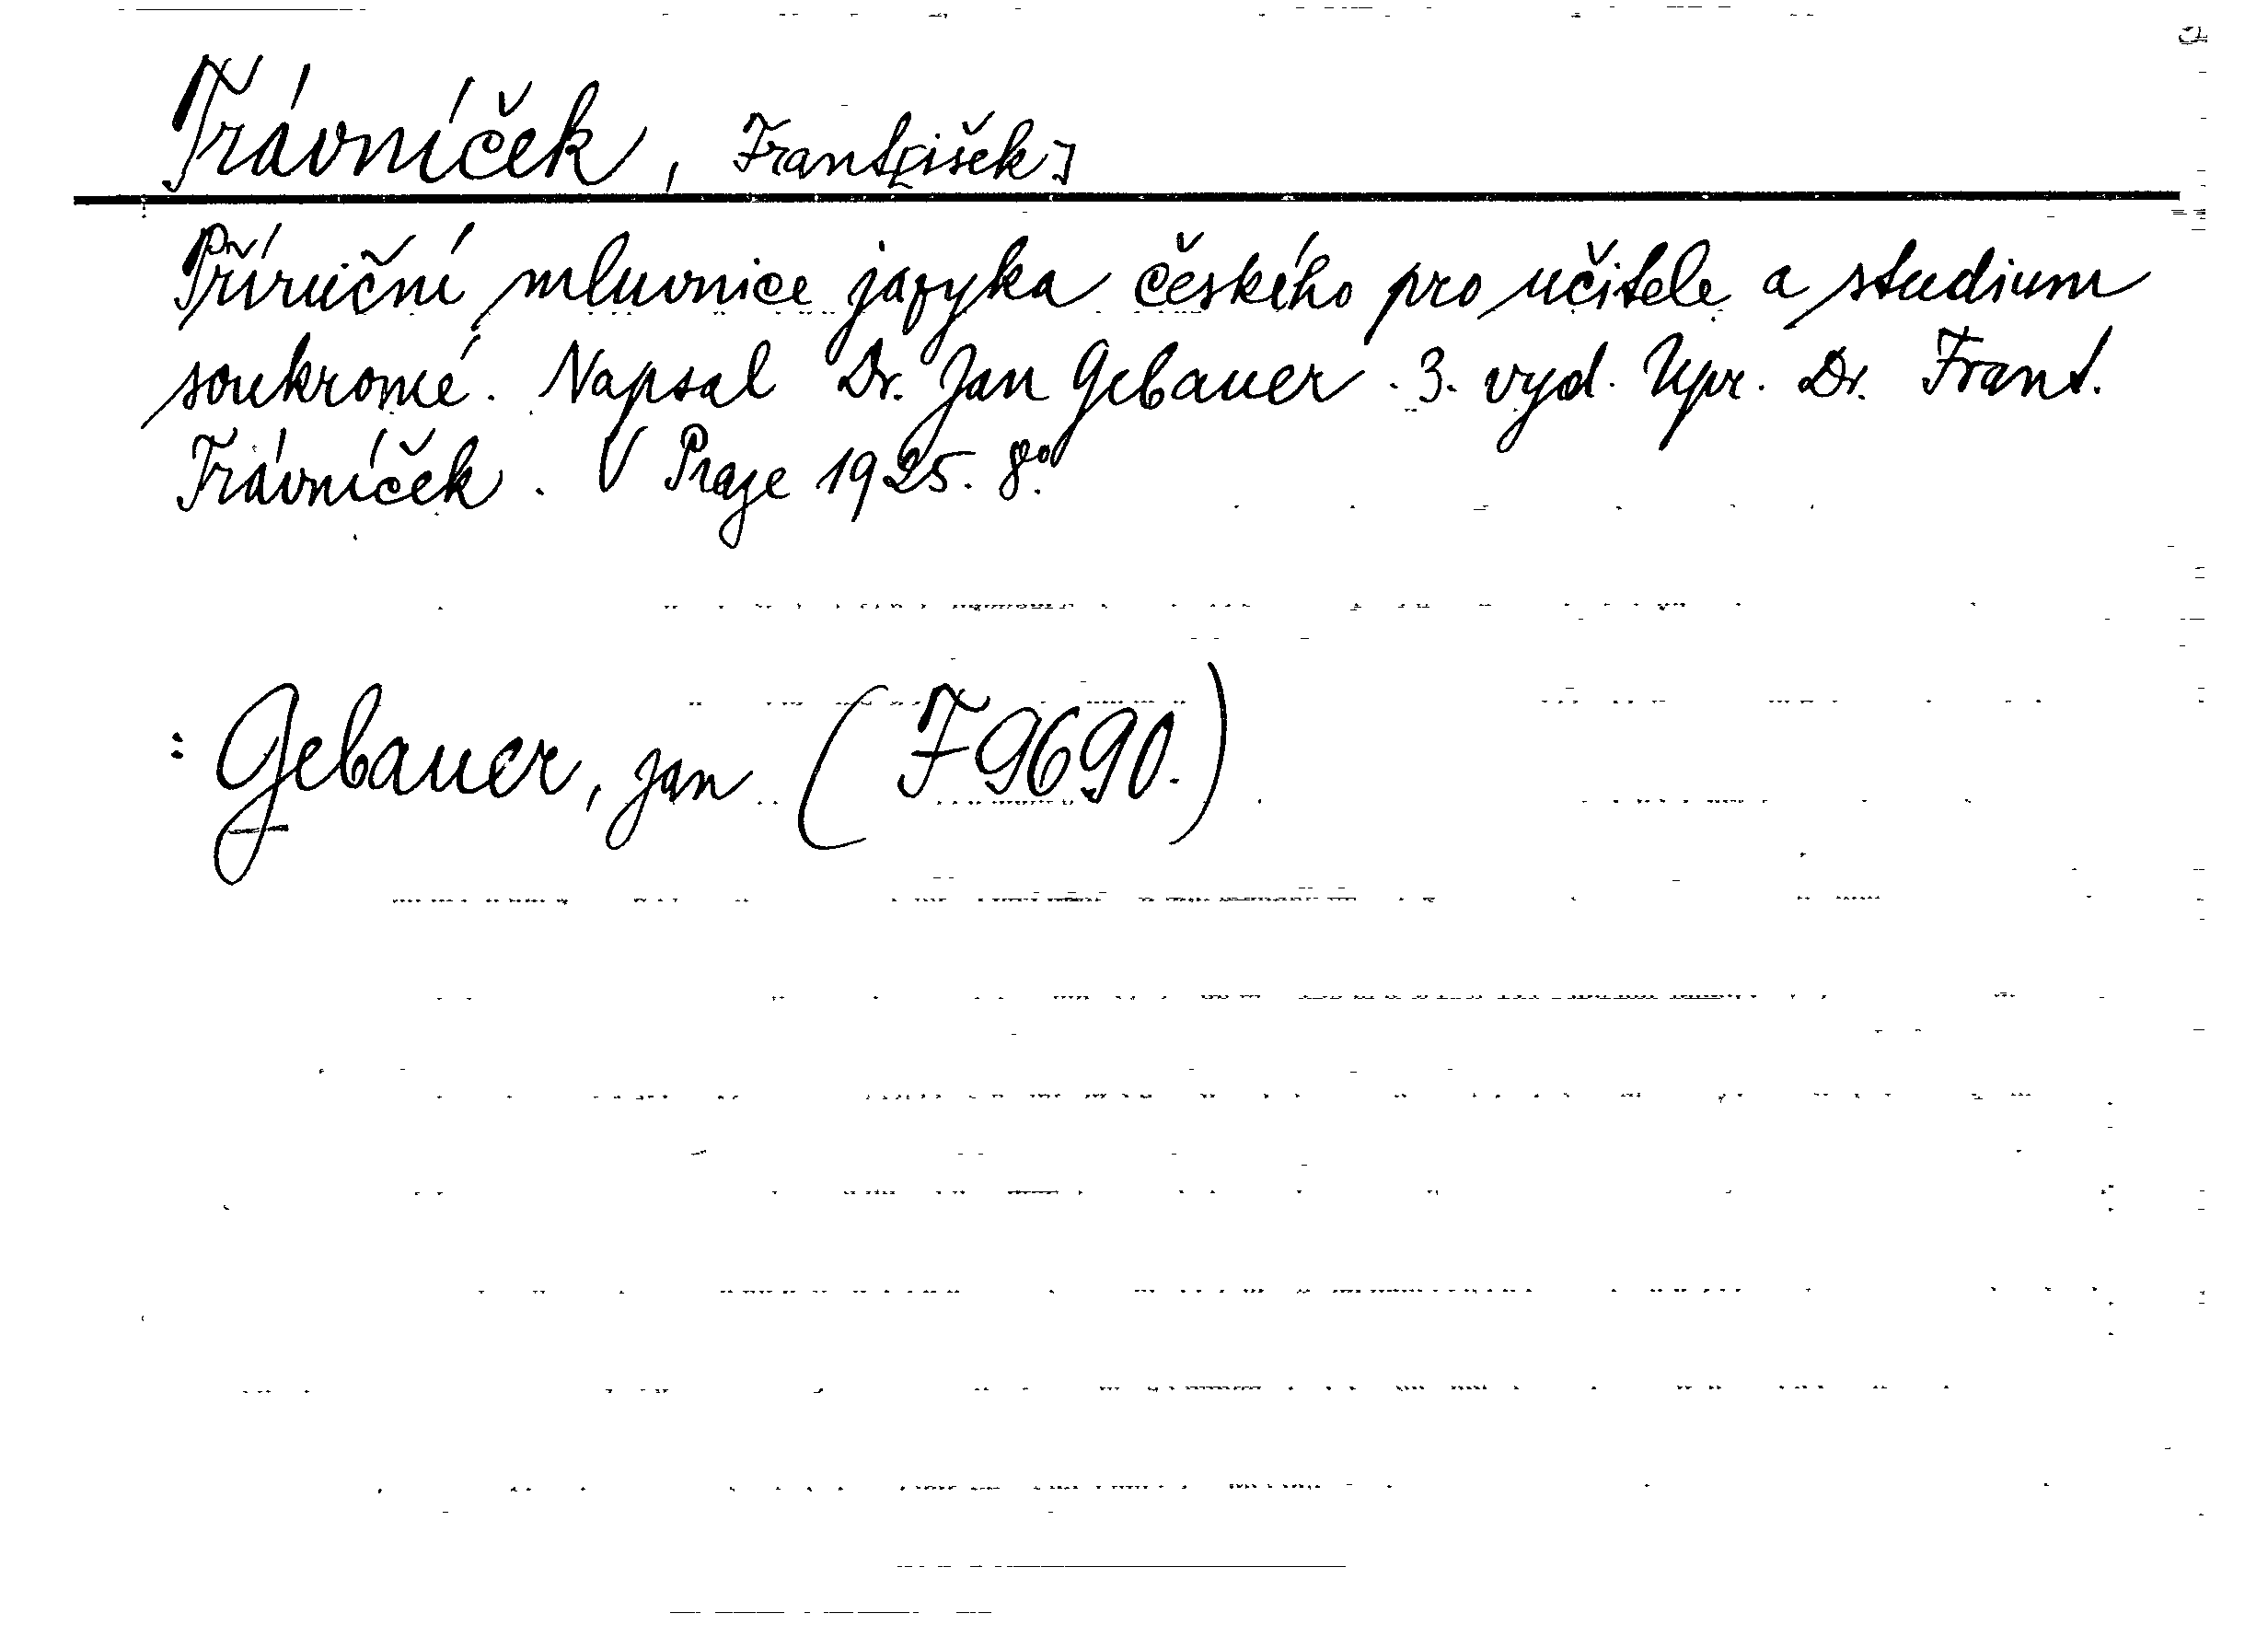 Trávníček, Frant[išek]
Příruční mluvnice jazyka českého pro učitele a studium
soukromé. Napsal Dr. Jan Gebauer. 3. vyd. Upr. Dr. Frant.
Trávníček. V Praze 1925. 8°.
: Gebauer, Jan (F 9690.)